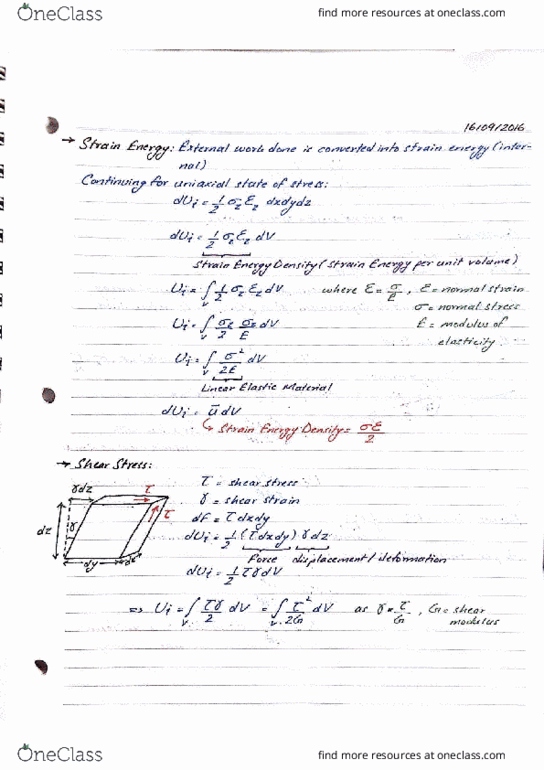 OneClass
find more resources at oneclass.com
16/09/2016
→ Strain Energy: External work done is converted into strain energy (inter-
nal)
Continuing for uniaxial state of stress:
dUi = 1/2 σz εz dxdydz
dUi = 1/2 σz εz dV
Strain Energy Density (Strain Energy per unit volume)
Ui = ∫v 1/2 σz εz dV where ε = σ/E, ε = normal strain
σ = normal stress
Ui = ∫v σz/2 σz/E dV E = modulus of
elasticity
Ui = ∫v σ²/2E dV
Linear Elastic Material
dUi = ū dV
↳ Strain Energy Density = σε/2
→ Shear Stress:
τ = shear stress
γdz τ
γ = shear strain
τ
dz γ
dF = τdxdy
dUi = 1/2 (τdxdy) γdz
dy dx
Force displacement/deformation
dUi = 1/2 τγdV
⇒ Ui = ∫v τγ/2 dV = ∫v τ²/2G dV as γ = τ/G, G = shear
modulus
OneClass
find more resources at oneclass.com